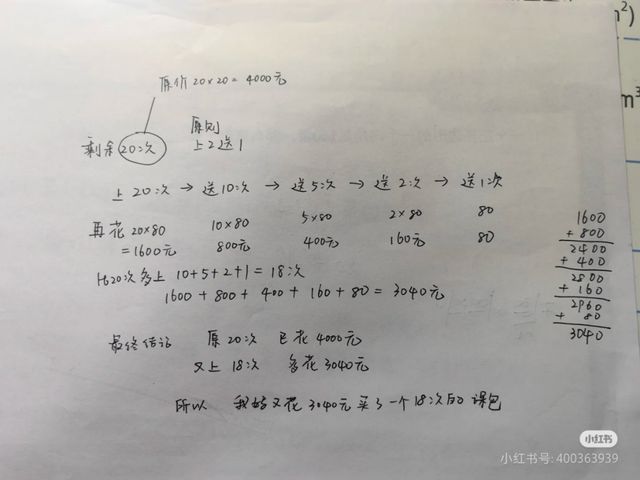 原价 20×20 = 4000元
剩余 20次
原则
上2送1
上20次 → 送10次 → 送5次 → 送2次 → 送1次
再花 20×80 10×80 5×80 2×80 80
=1600元 800元 400元 160元 80
比20次多上 10+5+2+1 = 18次
1600 + 800 + 400 + 160 + 80 = 3040元
1600
+ 800
2400
+ 400
2800
+ 160
2960
+ 80
3040
最终结论 原20次 已花4000元
又上18次 多花3040元
所以 我妈又花3040元买了一个18次的课包
小红书
小红书号: 400363939
m²)
m³